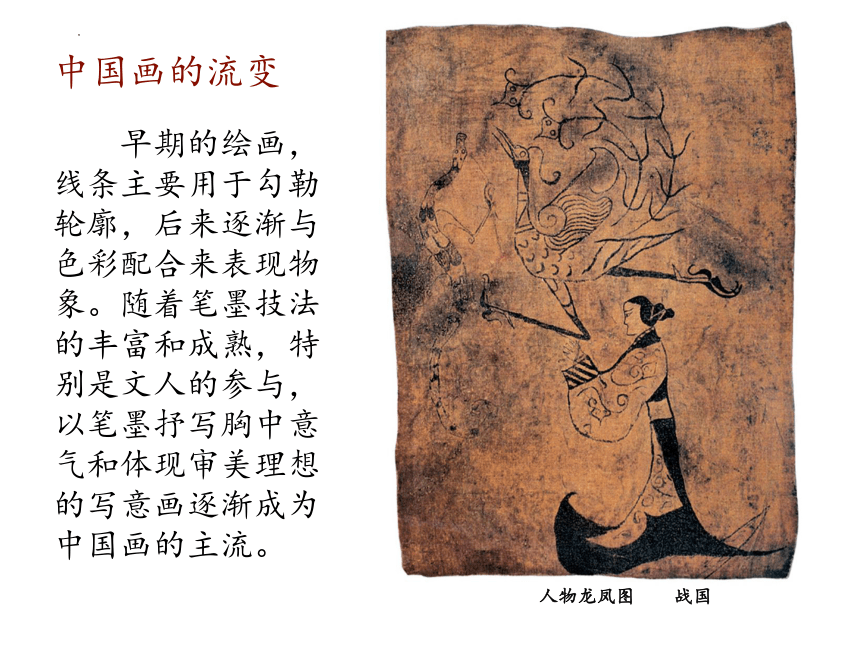 中国画的流变
早期的绘画，
线条主要用于勾勒
轮廓，后来逐渐与
色彩配合来表现物
象。随着笔墨技法
的丰富和成熟，特
别是文人的参与，
以笔墨抒写胸中意
气和体现审美理想
的写意画逐渐成为
中国画的主流。
人物龙凤图 战国